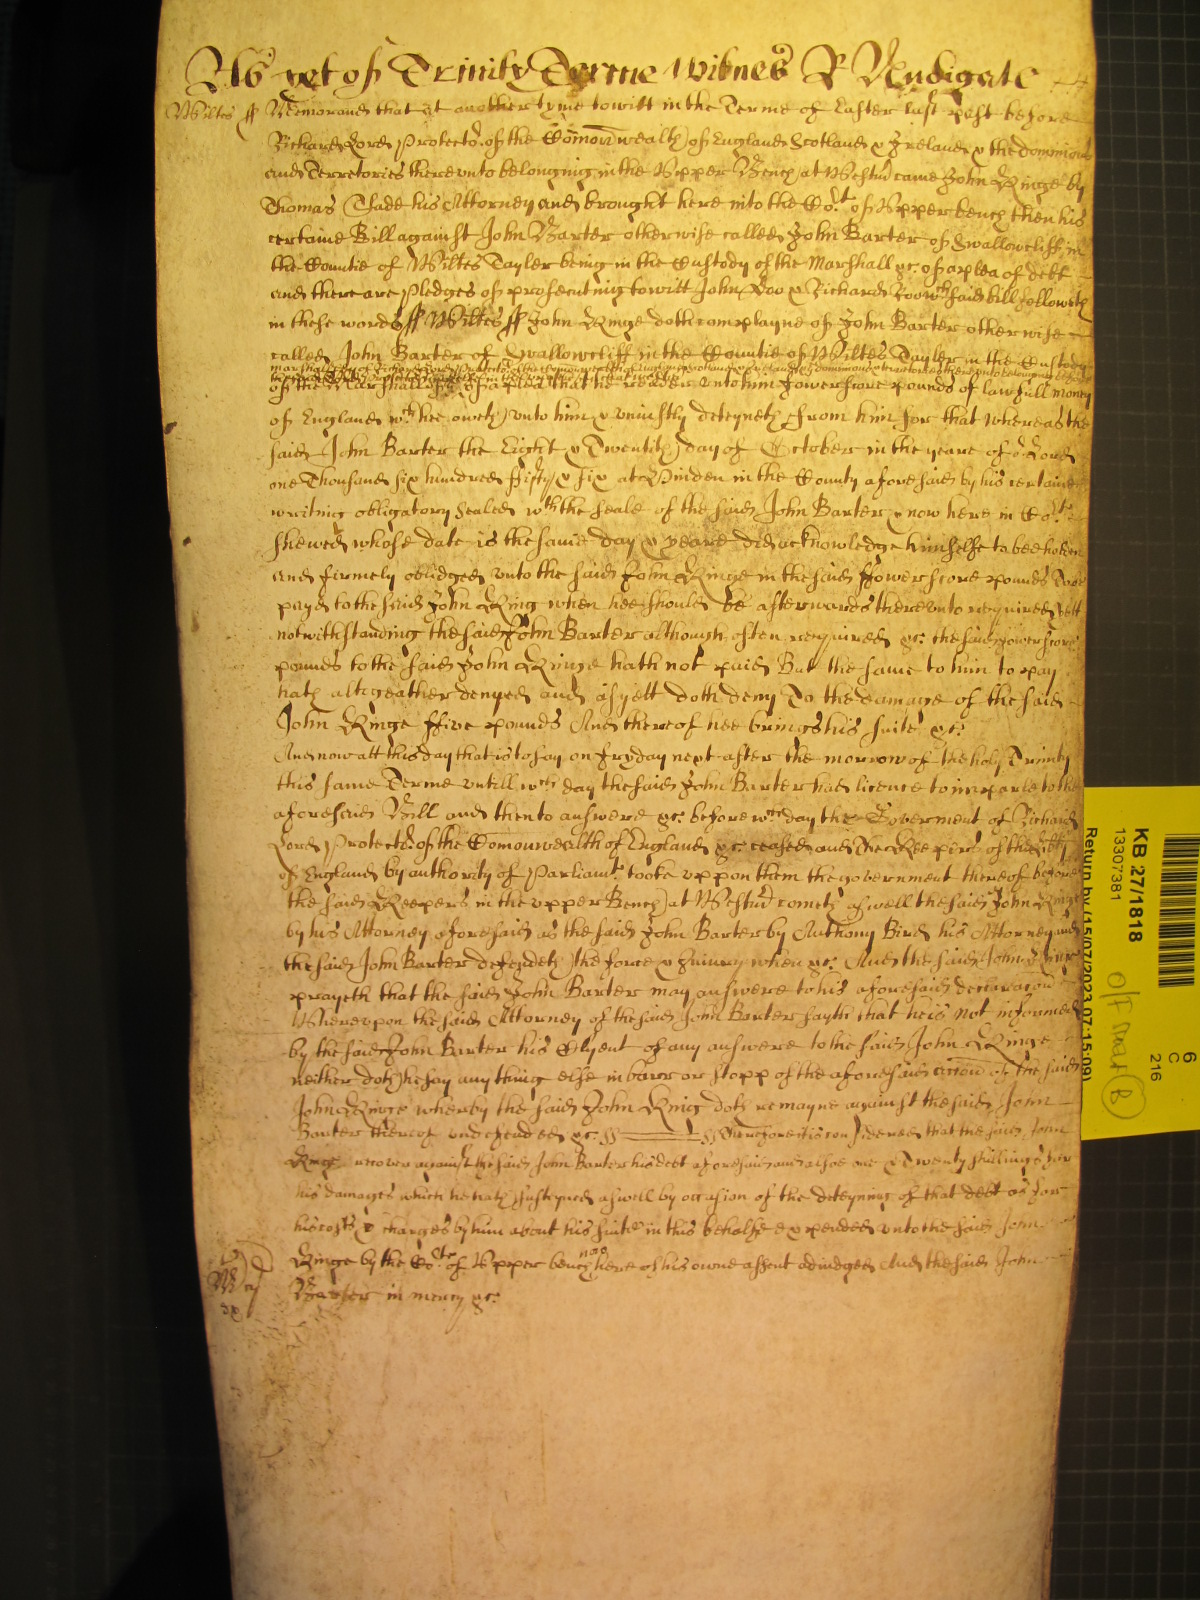 As yet of Trinity Terme Witnes R Nudigate
Wiltes ss Memorand that at another tyme towitt in the Terme of Easter last past before
Richard Lord Protector of the Comonwealth of England Scotland & Ireland & the dominions
and Terretories thereunto belonging in the Upper Bench at Westmr came John Ringe by
Thomas his Attorney and brought here into the Cort of Upper bench then his
certaine Bill against John Barter otherwise called John Barter of Swallowcliff in
the Countie of Wiltes Tayler being in the Custody of the Marshall &c of a plea of debt
and there are Pledges of prosecuting towitt John Doo & Richard Roo wch said bill followeth
in these words ss Wiltes ss John Ringe doth complayne of John Barter otherwise
called John Barter of Swallowcliff in the Countie of Wiltes Tayler in the Custody
of the Marshall &c of a plea that he render unto him Fowerscore pounds of lawfull money
of England wch hee oweth unto him & uniustly deteyneth from him for that whereas the
said John Barter the Eight & Twentith day of October in the yeare of or Lord
one Thousand six hundred fifty & six at Hindon in the County aforesaid by his certaine
writing obligatory Sealed wth the seale of the said John Barter & now here in Cort
shewed whose date is the same day & yeare did acknowledge himselfe to bee holden
and firmely oblidged unto the said John Ringe in the said Fowerscore pounds To be
payd to the said John Ring when hee should be afterwards thereunto required yett
notwithstanding the said John Barter although often required &c the said Fowerscore
pounds to the said John Ringe hath not paid But the same to him to pay
hath altogeather denyed and as yett doth deny To the damage of the said
John Ringe ffive pounds And thereof hee brings his suite &c
And now att this day that is to say on Fryday next after the morrow of the holy Trinity
this same Terme untill wch day the said John Barter had licence to imparle to the
aforesaid Bill and then to answere &c before wch day the Goverment of Richard
Lord Protector of the Comonwealth of England &c ceased and The Keepers of the liberty
of England by authority of Parliamt tooke uppon them the government thereof before
the said Keepers in the upper Bench at Westmr cometh aswell the said John Ringe
by his Attorney aforesaid as the said John Barter by Anthony Bird his Attorney and
the said John Barter defendeth the force & Iniury when &c And the said John Ringe
prayeth that the said John Barter may answere to his aforesaid declaracon
Whereupon the said Attorney of the said John Barter sayth that he is not informed
by the said John Barter his Clyent of any answere to the said John Ringe
neither doth he say any thing else in barr or stopp of the aforesaid accon of the said
John Ringe wherby the said John Ring doth remayne against the said John
Barter thereof undefended &c ss Therefore it is considered that the said John
Ringe recover against the said John Barter his debt aforesaid and alsoe one & Twenty shillings for
his damages which he hath susteyned aswell by occasion of the deteyning of that debt as for
his costs & charges by him about his suite in this behalfe expended unto the said John
Ringe by the Cort of Upper bench now here of his owne assent adiudged And the said John
Barter in mercy &c
KB 27/1818
13307381
Return by (15/07/2023 07:15:09)
6
C
216